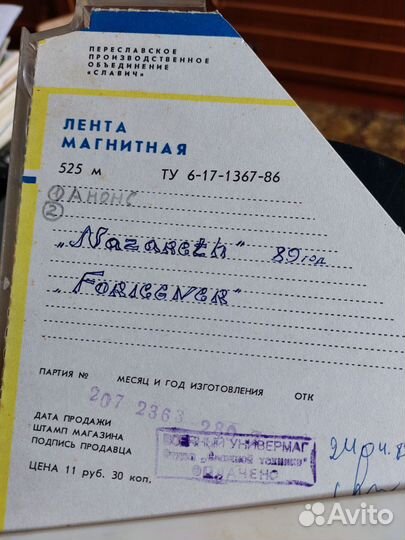 ПЕРЕСЛАВСКОЕ
ПРОИЗВОДСТВЕННОЕ
ОБЪЕДИНЕНИЕ
«СЛАВИЧ»
ЛЕНТА
МАГНИТНАЯ
525 м ТУ 6-17-1367-86
① АНОНС
②
„Nazareth" 89 год
„FORIGENER"
ПАРТИЯ № МЕСЯЦ И ГОД ИЗГОТОВЛЕНИЯ ОТК
207 2363 280
ДАТА ПРОДАЖИ
ШТАМП МАГАЗИНА
ПОДПИСЬ ПРОДАВЦА
ВОЕННЫЙ УНИВЕРМАГ
ОПЛАЧЕНО
ЦЕНА 11 руб. 30 коп.
Avito